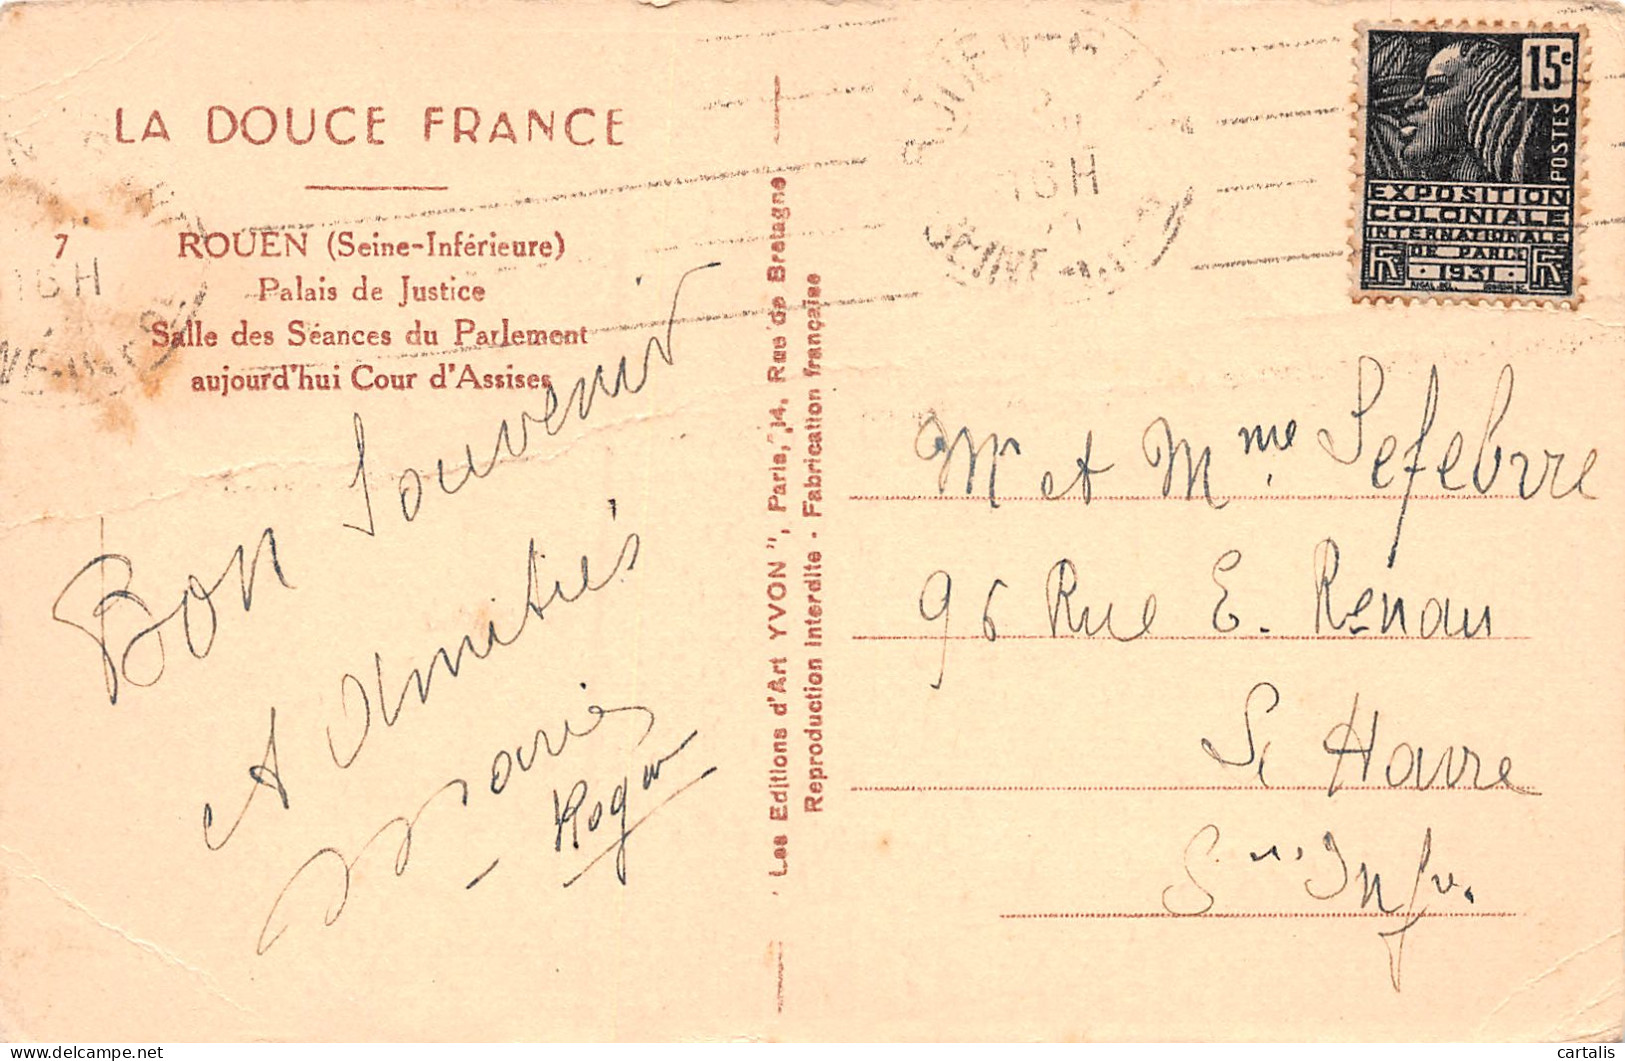 LA DOUCE FRANCE
7
ROUEN (Seine-Inférieure)
Palais de Justice
Salle des Séances du Parlement
aujourd'hui Cour d'Assises
16H
Bon Souvenir
et Amitiés
Roger
Les Editions d'Art YVON", Paris, 14, Rue de Bretagne
Reproduction interdite - Fabrication française
ROUEN
16H
SEINE
15c
POSTES
EXPOSITION
COLONIALE
INTERNATIONALE
DE PARIS
· 1931 ·
Mr et Mme Lefebvre
96 Rue E. Renan
Le Havre
Sne Infre
cartalis